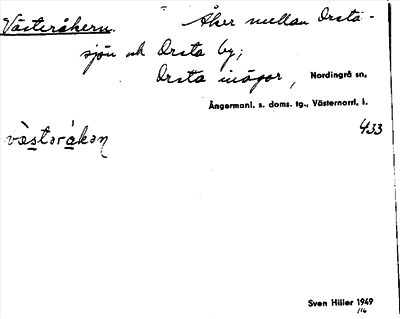 Västeråkern. Åker mellan Orsta-
sjön och Orsta by;
Orsta inägor, Nordingrå sn,
Ångermanl. s. doms. tg., Västernorrl. l.
433
Sven Hiller 1949